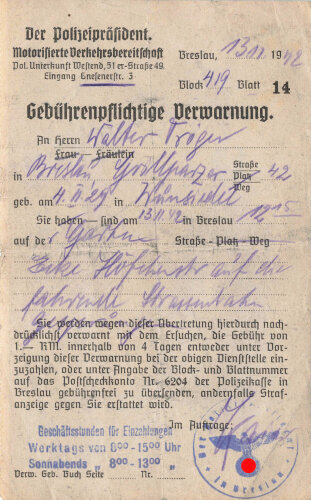 Der Polizeipräsident.
Motorisierte Verkehrsbereitschaft
Pol. Unterkunft Westend, 51 er-Straße 49.
Eingang Gnesenerstr. 3
Breslau, 13.11. 1942
Block 419 Blatt 14
Gebührenpflichtige Verwarnung.
An Herrn Walter
Frau – Fräulein
in Breslau Straße Platz Weg 42
geb. am 4.11.29 in Wunsiedel
Sie haben – sind am 13.11.42 in Breslau 12 15
auf der Straße – Platz – Weg
Ecke auf die
fahrende Strassenbahn
Sie werden wegen dieser Übertretung hierdurch nach-
drücklichst verwarnt mit dem Ersuchen, die Gebühr von
1.– RM. innerhalb von 4 Tagen entweder unter Vor-
zeigung dieser Verwarnung bei der obigen Dienststelle ein-
zuzahlen, oder unter Angabe der Block- und Blattnummer
auf das Postscheckkonto Nr. 6204 der Polizeikasse in
Breslau gebührenfrei zu übersenden, andernfalls Straf-
anzeige gegen Sie erstattet wird.
Im Auftrage:
Geschäftsstunden für Einzahlungen
Werktags von 8°°-15°° Uhr
Sonnabends „ 8°°-13°° „
Verw. Geb. Buch Seite Nr.
in Breslau